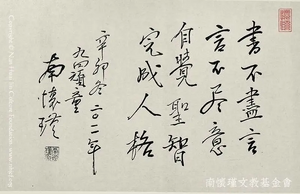 書不盡言
言不盡意
自覺聖智
完成人格
辛卯冬二〇一一年
九四頑童
南懷瑾
南懷瑾文教基金會